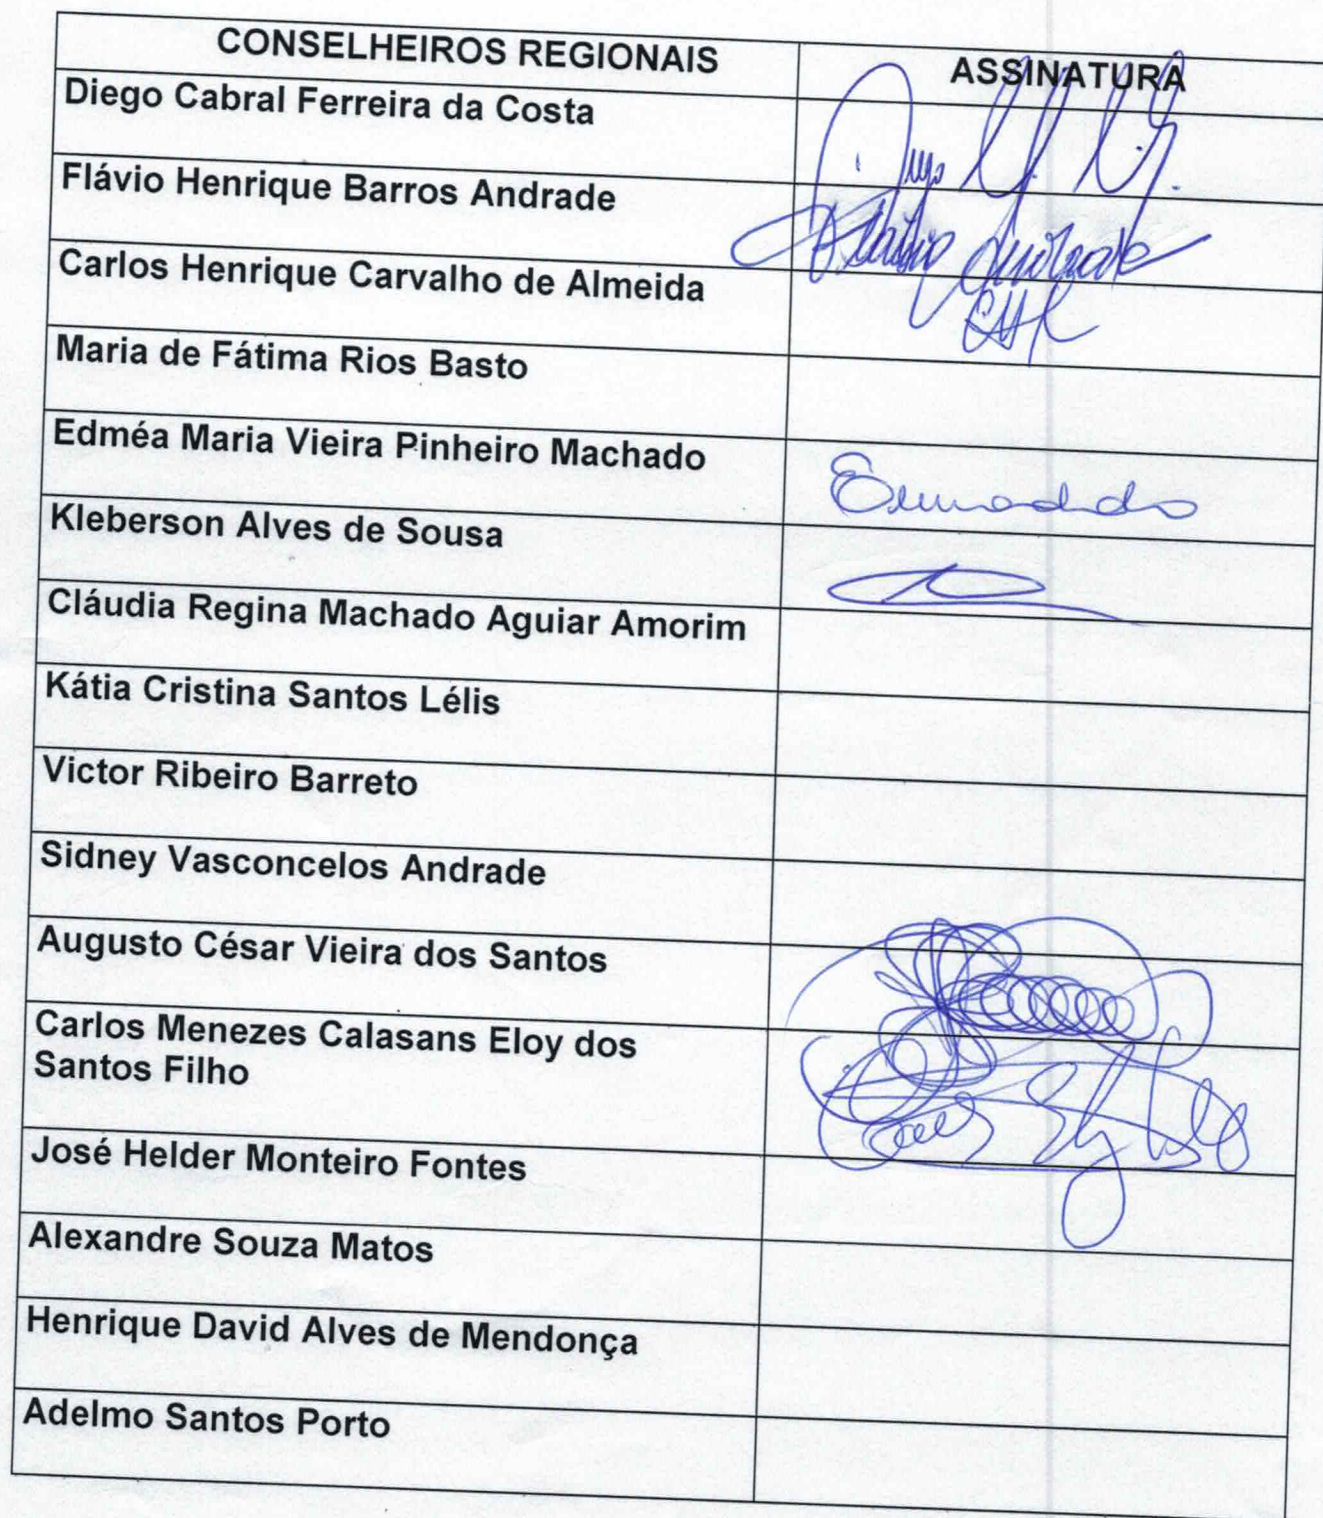 CONSELHEIROS REGIONAIS ASSINATURA
Diego Cabral Ferreira da Costa
Flávio Henrique Barros Andrade
Flávio Andrade
Carlos Henrique Carvalho de Almeida
Maria de Fátima Rios Basto
Edméa Maria Vieira Pinheiro Machado
Kleberson Alves de Sousa
Cláudia Regina Machado Aguiar Amorim
Kátia Cristina Santos Lélis
Victor Ribeiro Barreto
Sidney Vasconcelos Andrade
Augusto César Vieira dos Santos
Carlos Menezes Calasans Eloy dos
Santos Filho
José Helder Monteiro Fontes
Alexandre Souza Matos
Henrique David Alves de Mendonça
Adelmo Santos Porto